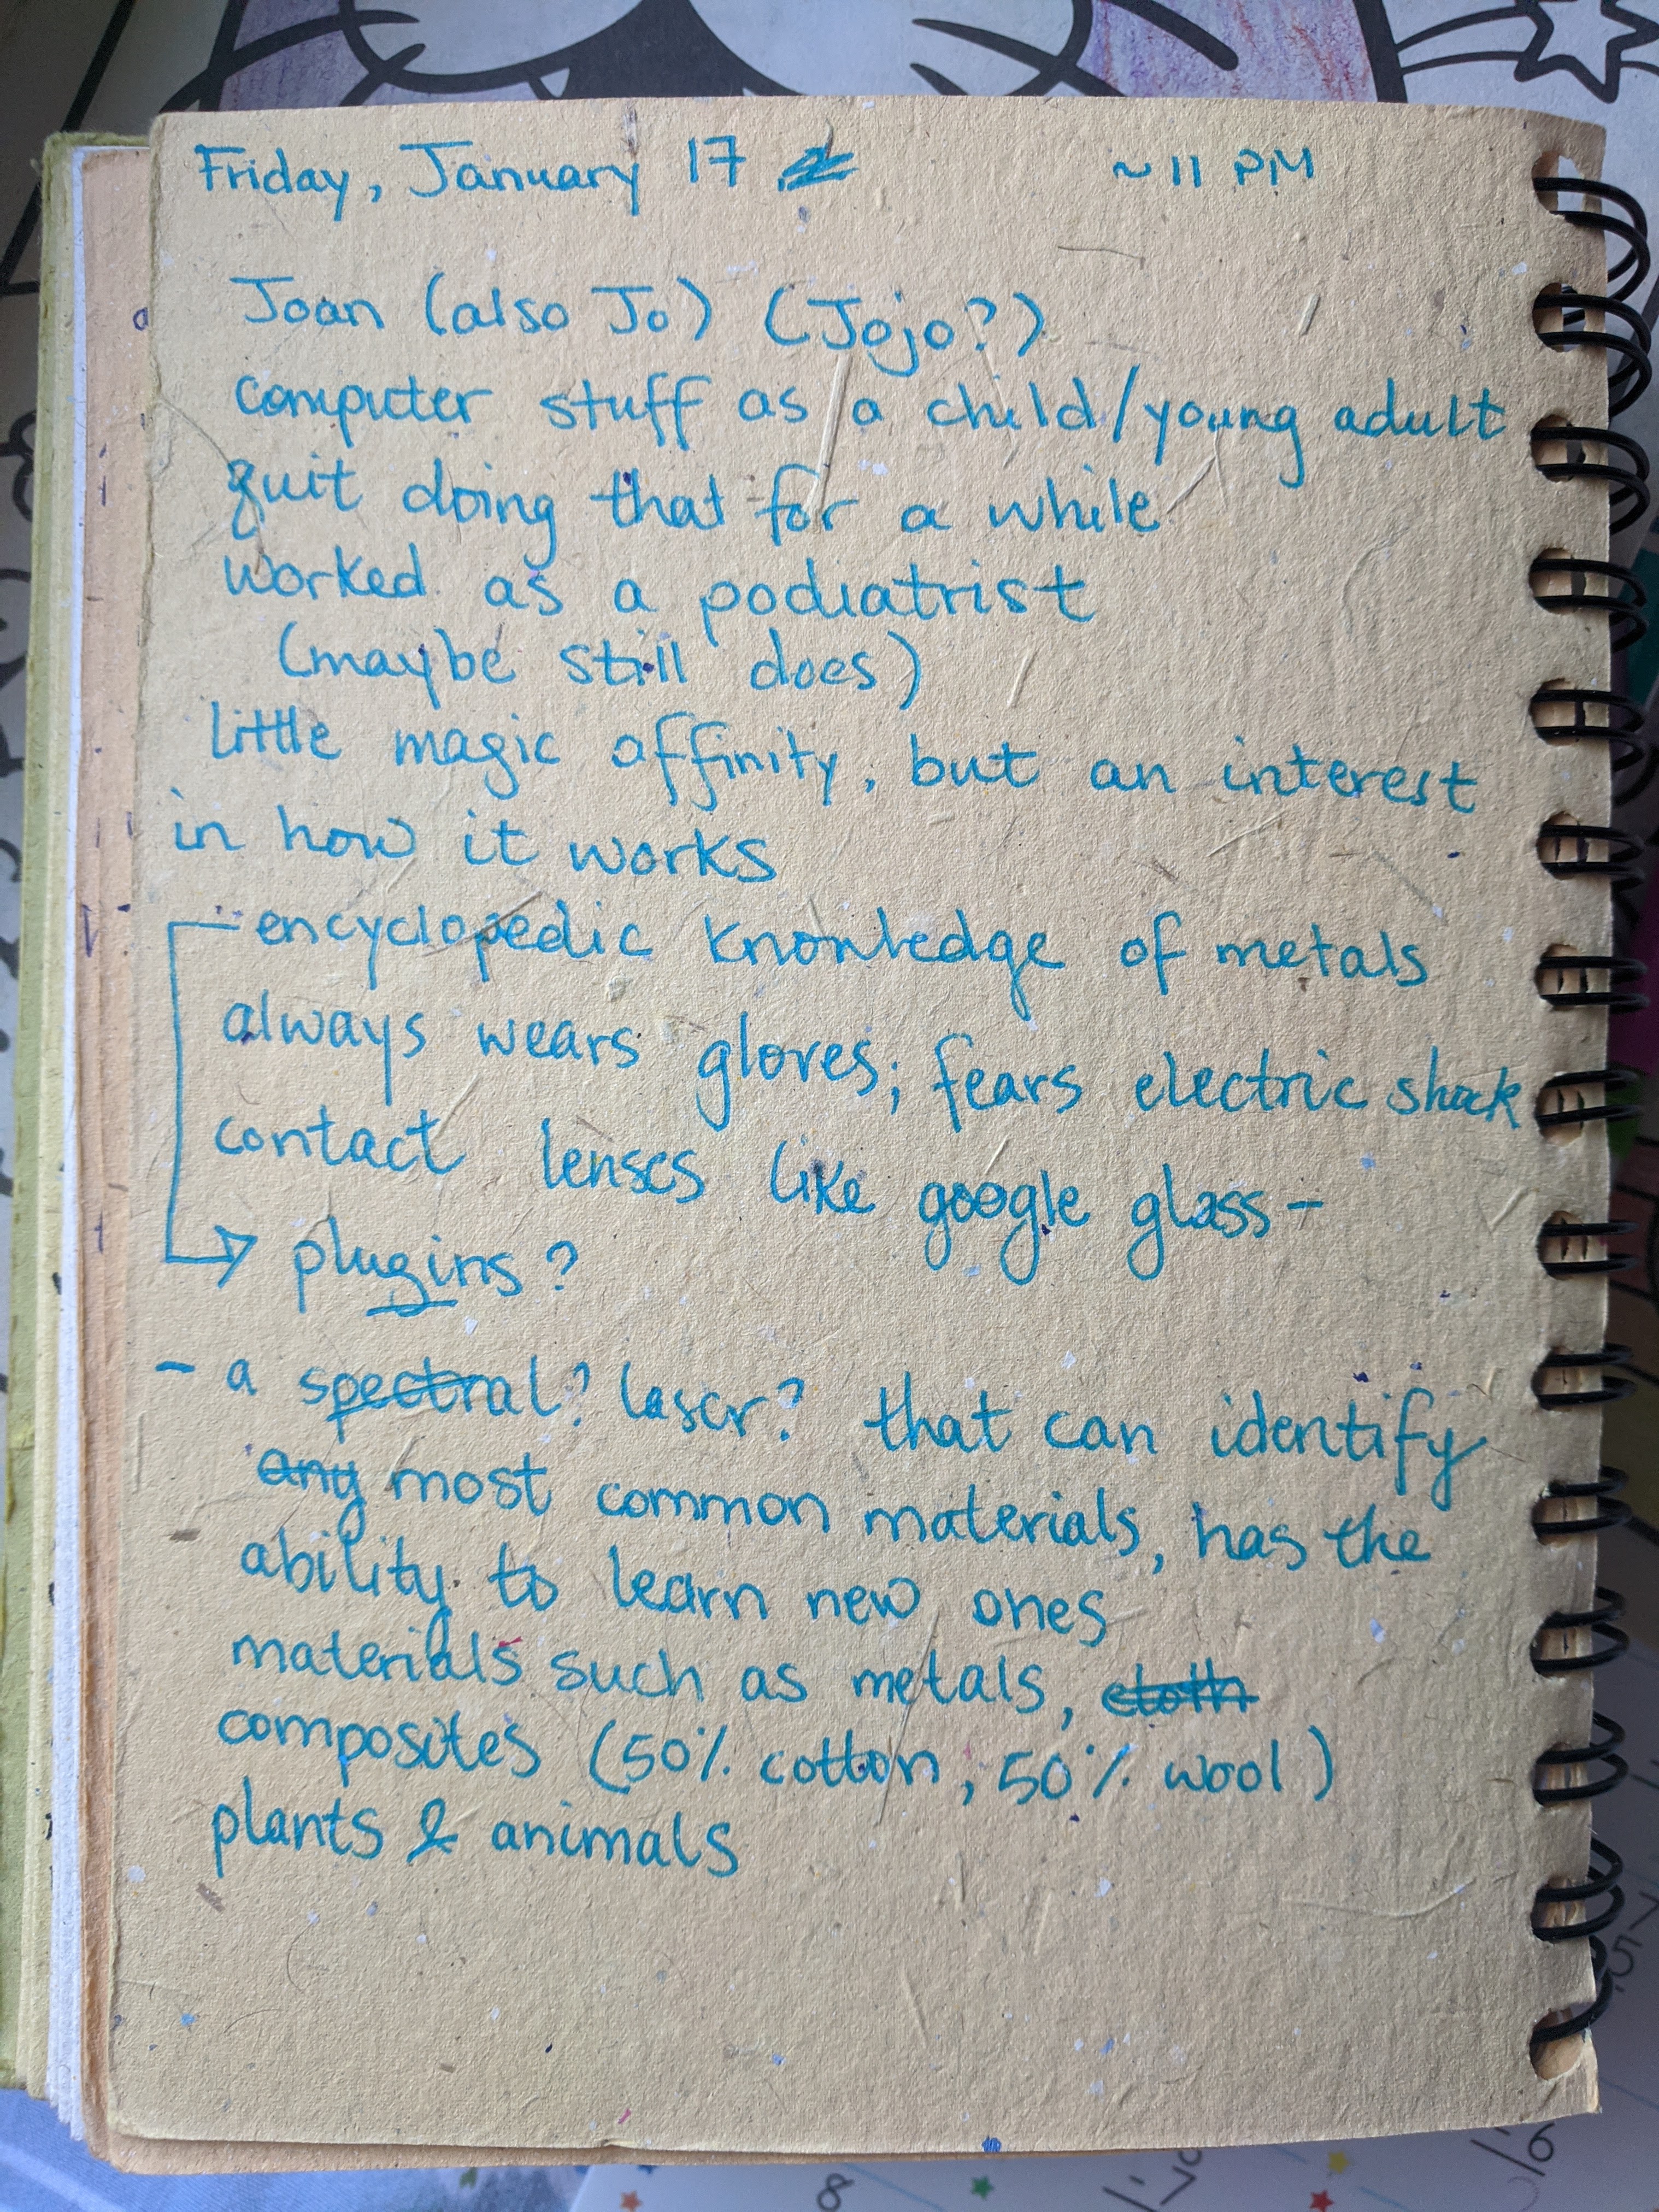 Friday, January 17 ~11 PM
Joan (also Jo) (Jojo?)
computer stuff as a child/young adult
quit doing that for a while
worked as a podiatrist
(maybe still does)
little magic affinity, but an interest
in how it works
encyclopedic knowledge of metals
always wears gloves; fears electric shock
contact lenses like google glass-
plugins?
- a spectral? laser? that can identify
any most common materials, has the
ability to learn new ones
materials such as metals, cloth
composites (50% cotton, 50% wool)
plants & animals
8
17
16
5
7